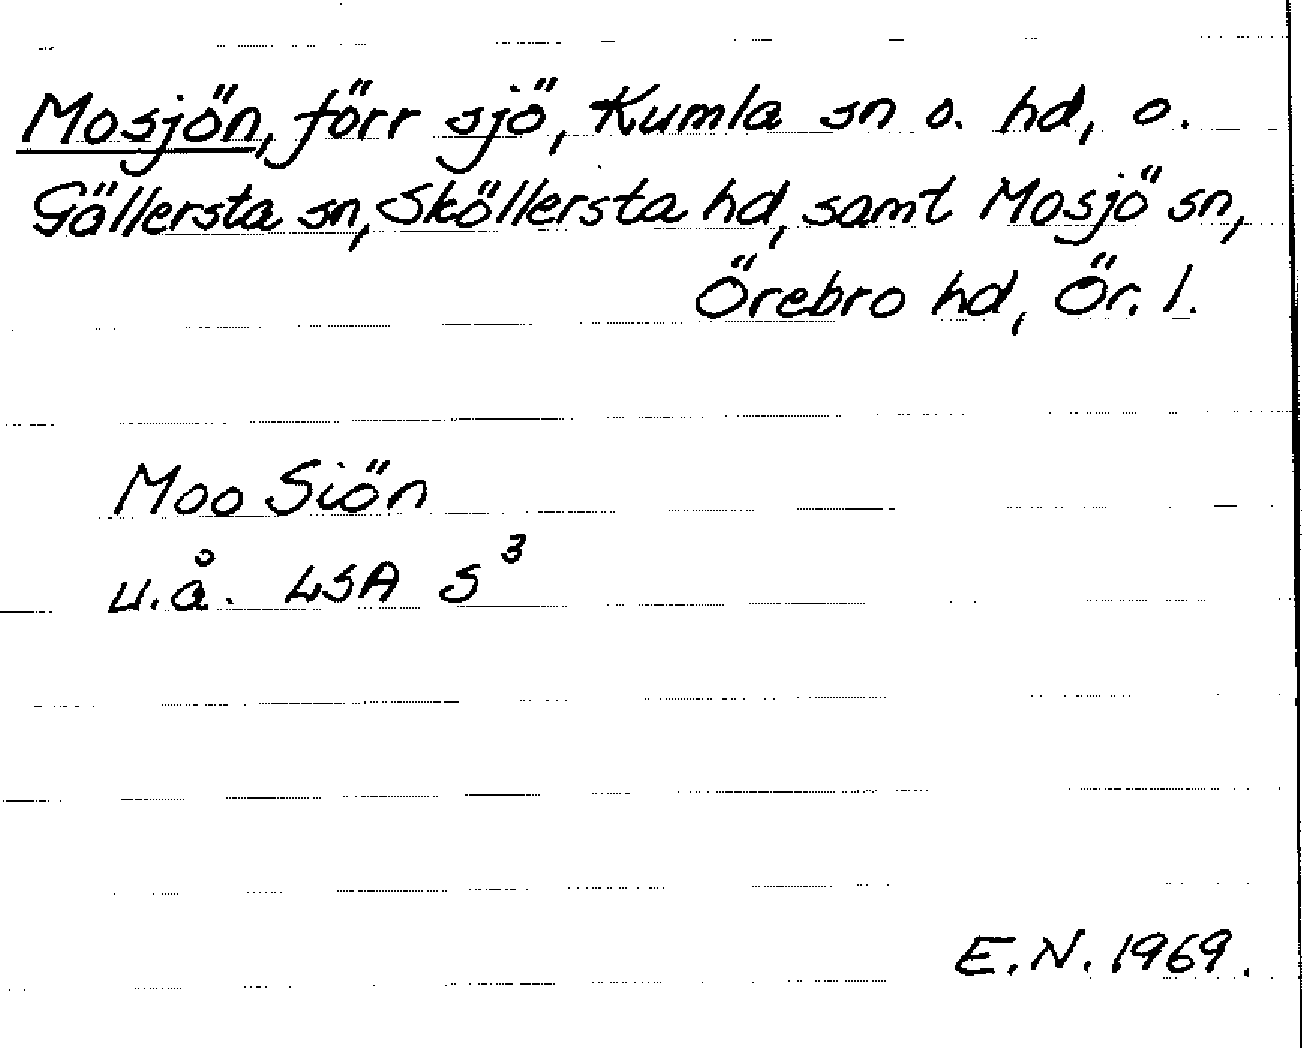 Mosjön, förr sjö, Kumla sn o. hd, o.
Gällersta sn, Sköllersta hd, samt Mosjö sn,
Örebro hd, Ör. l.
Moo Siön
u.å. LSA S³
E.N. 1969.